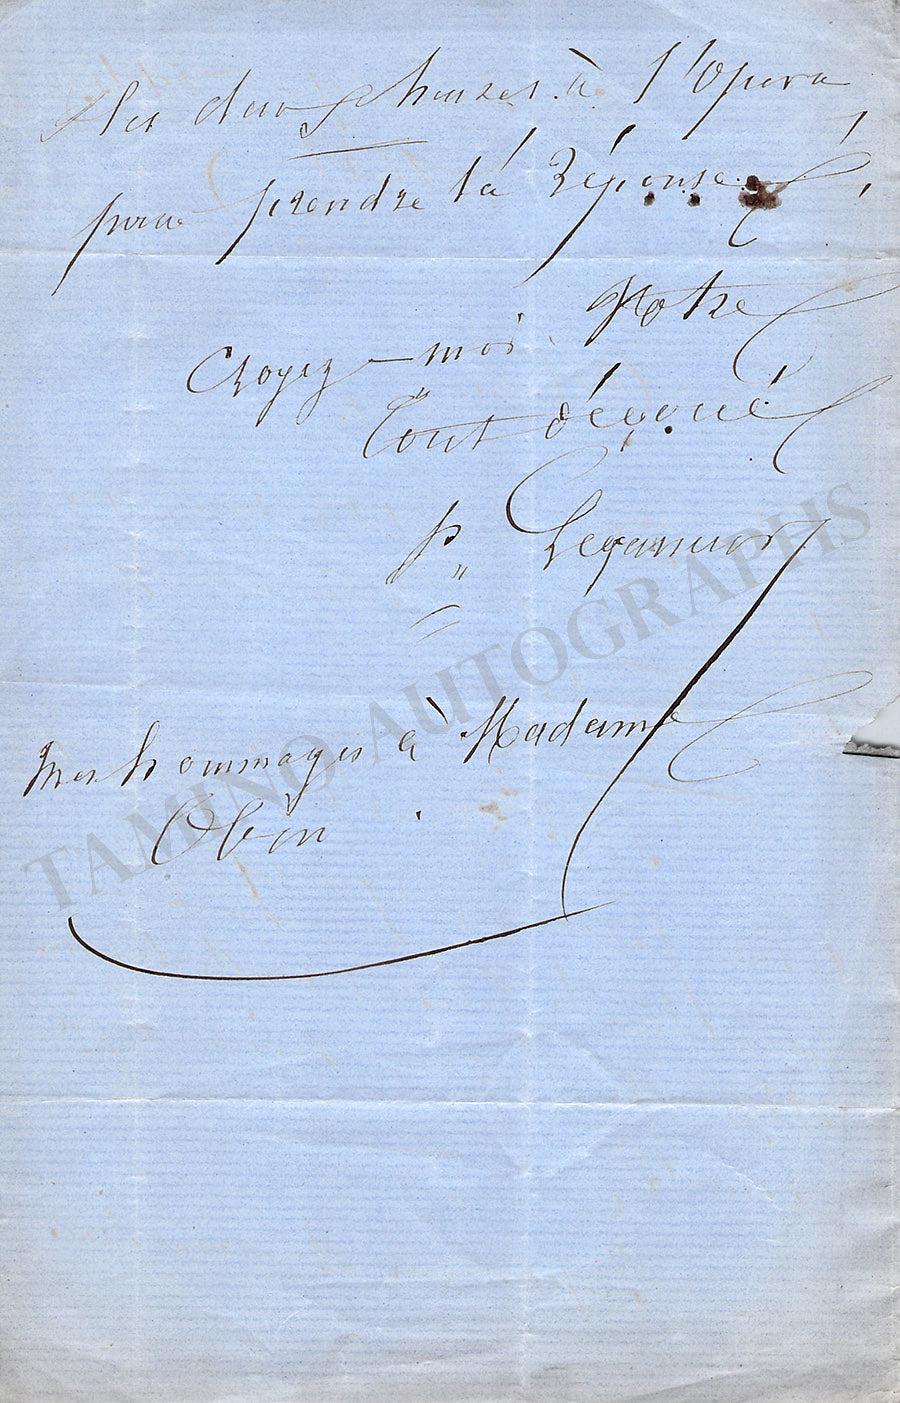 les deux heures à l'Opera
pour prendre ta Réponse
Croyez-moi. Votre
Tout dévoué
P.
Mes hommages à Madame
Obin.
TAMINO AUTOGRAPHS